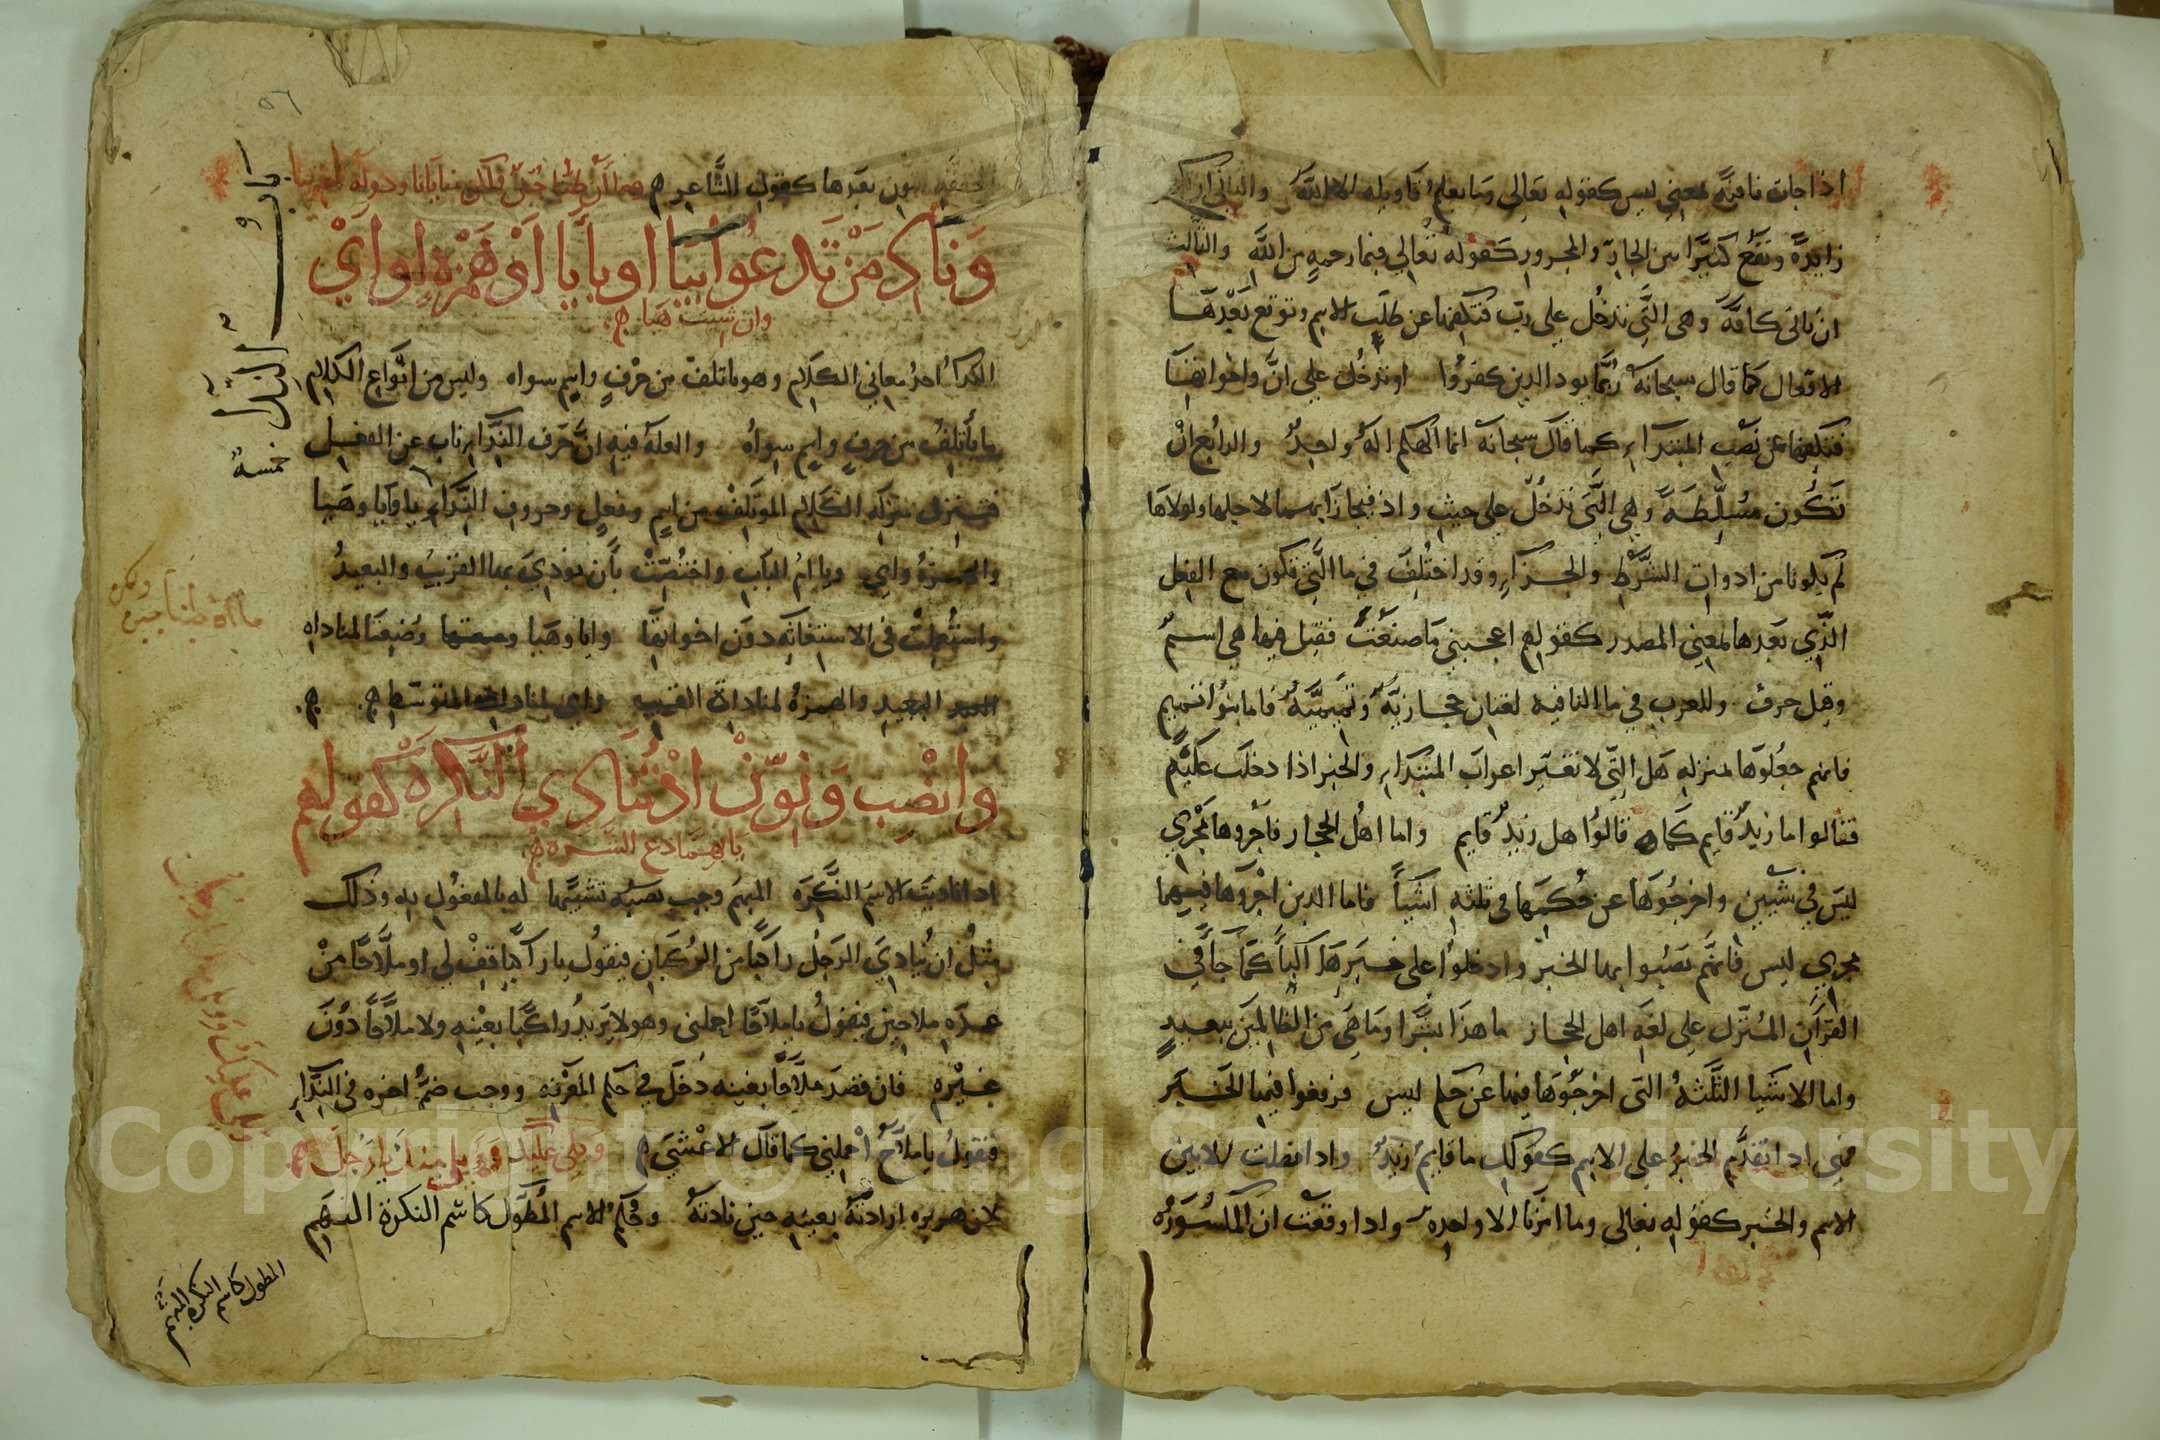 اذا جات نافية بمعنى ليس كقوله تعالى وما يعلم تاويله الا الله والثاني ان
زايدة وتقع كثيرا بين الجار والمجرور كقوله تعالى فبما رحمة من الله والثالث
ان ياتى كافة وهى التى تدخل على رب فتكفها عن طلب الاسم وتوقع بعدها
الافعال كما قال سبحانه ربما يود الذين كفروا او تدخل على ان واخواتها
فتكفها عن نصب المبتداء كما قال سبحانه انما الهكم اله واحد والرابع ان
تكون مسلطة وهى التى تدخل على حيث واذ فيجازا بهما لاجلها ولولاها
لم يكونا من ادوات الشرط والجزاء وقد اختلف في ما التى تكون مع الفعل
الذي بعدها بمعنى المصدر كقولهم اعجبني ما صنعت فقيل فيها هي اسم
وقيل حرف وللعرب في ما النافية لغتان حجازية وتميمية فاما بنوا تميم
فانهم جعلوها بمنزلة هل التى لا تغير اعراب المبتداء والخبر اذا دخلت عليهم
فقالوا ما زيد قايم كما قالوا هل زيد قايم واما اهل الحجاز فاجروها مجرى
ليس في شيين واخرجوها عن حكمها في ثلثة اشيا فاما الذين اجروها فيهما
مجري ليس فانهم نصبوا بها الخبر وادخلوا على خبرها الباء كما جا في
القران المنزل على لغة اهل الحجاز ما هذا بشرا وما هي من الظالمين ببعيد
واما الاشيا الثلثة التى اخرجوها فيها عن حكم ليس فرفعوا فيها الخبر
فهى اذا تقدم الخبر على الاسم كقولك ما قايم زيد واذا فصلت الا بين
الاسم والخبر كقوله تعالى وما امرنا الا واحدة واذا وقعت ان المكسورة
٥٦
الخفيفة النون بعدها كقول الشاعر
باب النداء
خمسة
وناد من تدعوا بيا او بايا او همزة او اي
وان شيت هيا
النداء احد معاني الكلام وهو ما تلف من حرف واسم سواه وليس من انواع الكلام
ما يأتلف من حرف واسم سواه والعلة فيه ان حرف النداء ناب عن الفعل
فتنزل منزلة الكلام المؤتلف من اسم وفعل وحروف النداء يا وايا وهيا
والهمزة واي ويا ام الباب واختصت بأن نودي بها القريب والبعيد
واستعملت في الاستغاثة دون اخواتها وايا وهيا وضعتا لمناداة
البعيد والهمزة لمناداة القريب واى لمناداة المتوسط
وانصب ونون اذ تنادي النكرة كقولهم
يا نهما دع الشره
اذا ناديت الاسم النكرة المبهم وجب نصبه تشبيها له بالمفعول به وذلك
مثل ان ينادي الرجل راكبا من الركبان فيقول يا راكبا قف لي او ملاحا من
عدة ملاحين فيقول يا ملاحا احملنى وهو لا يريد راكبا بعينه ولا ملاحا دون
غيره فان قصد ملاحا بعينه دخل في حكم المعرفة ووجب ضم اخره في النداء
فتقول يا ملاح احملني كما قال الاعشى ويلى عليك وويلى منك يا رجل
لان هريرة ارادته بعينه حين نادته وحكم الاسم المطول كاسم النكرة المبهم
المطول كاسم النكرة